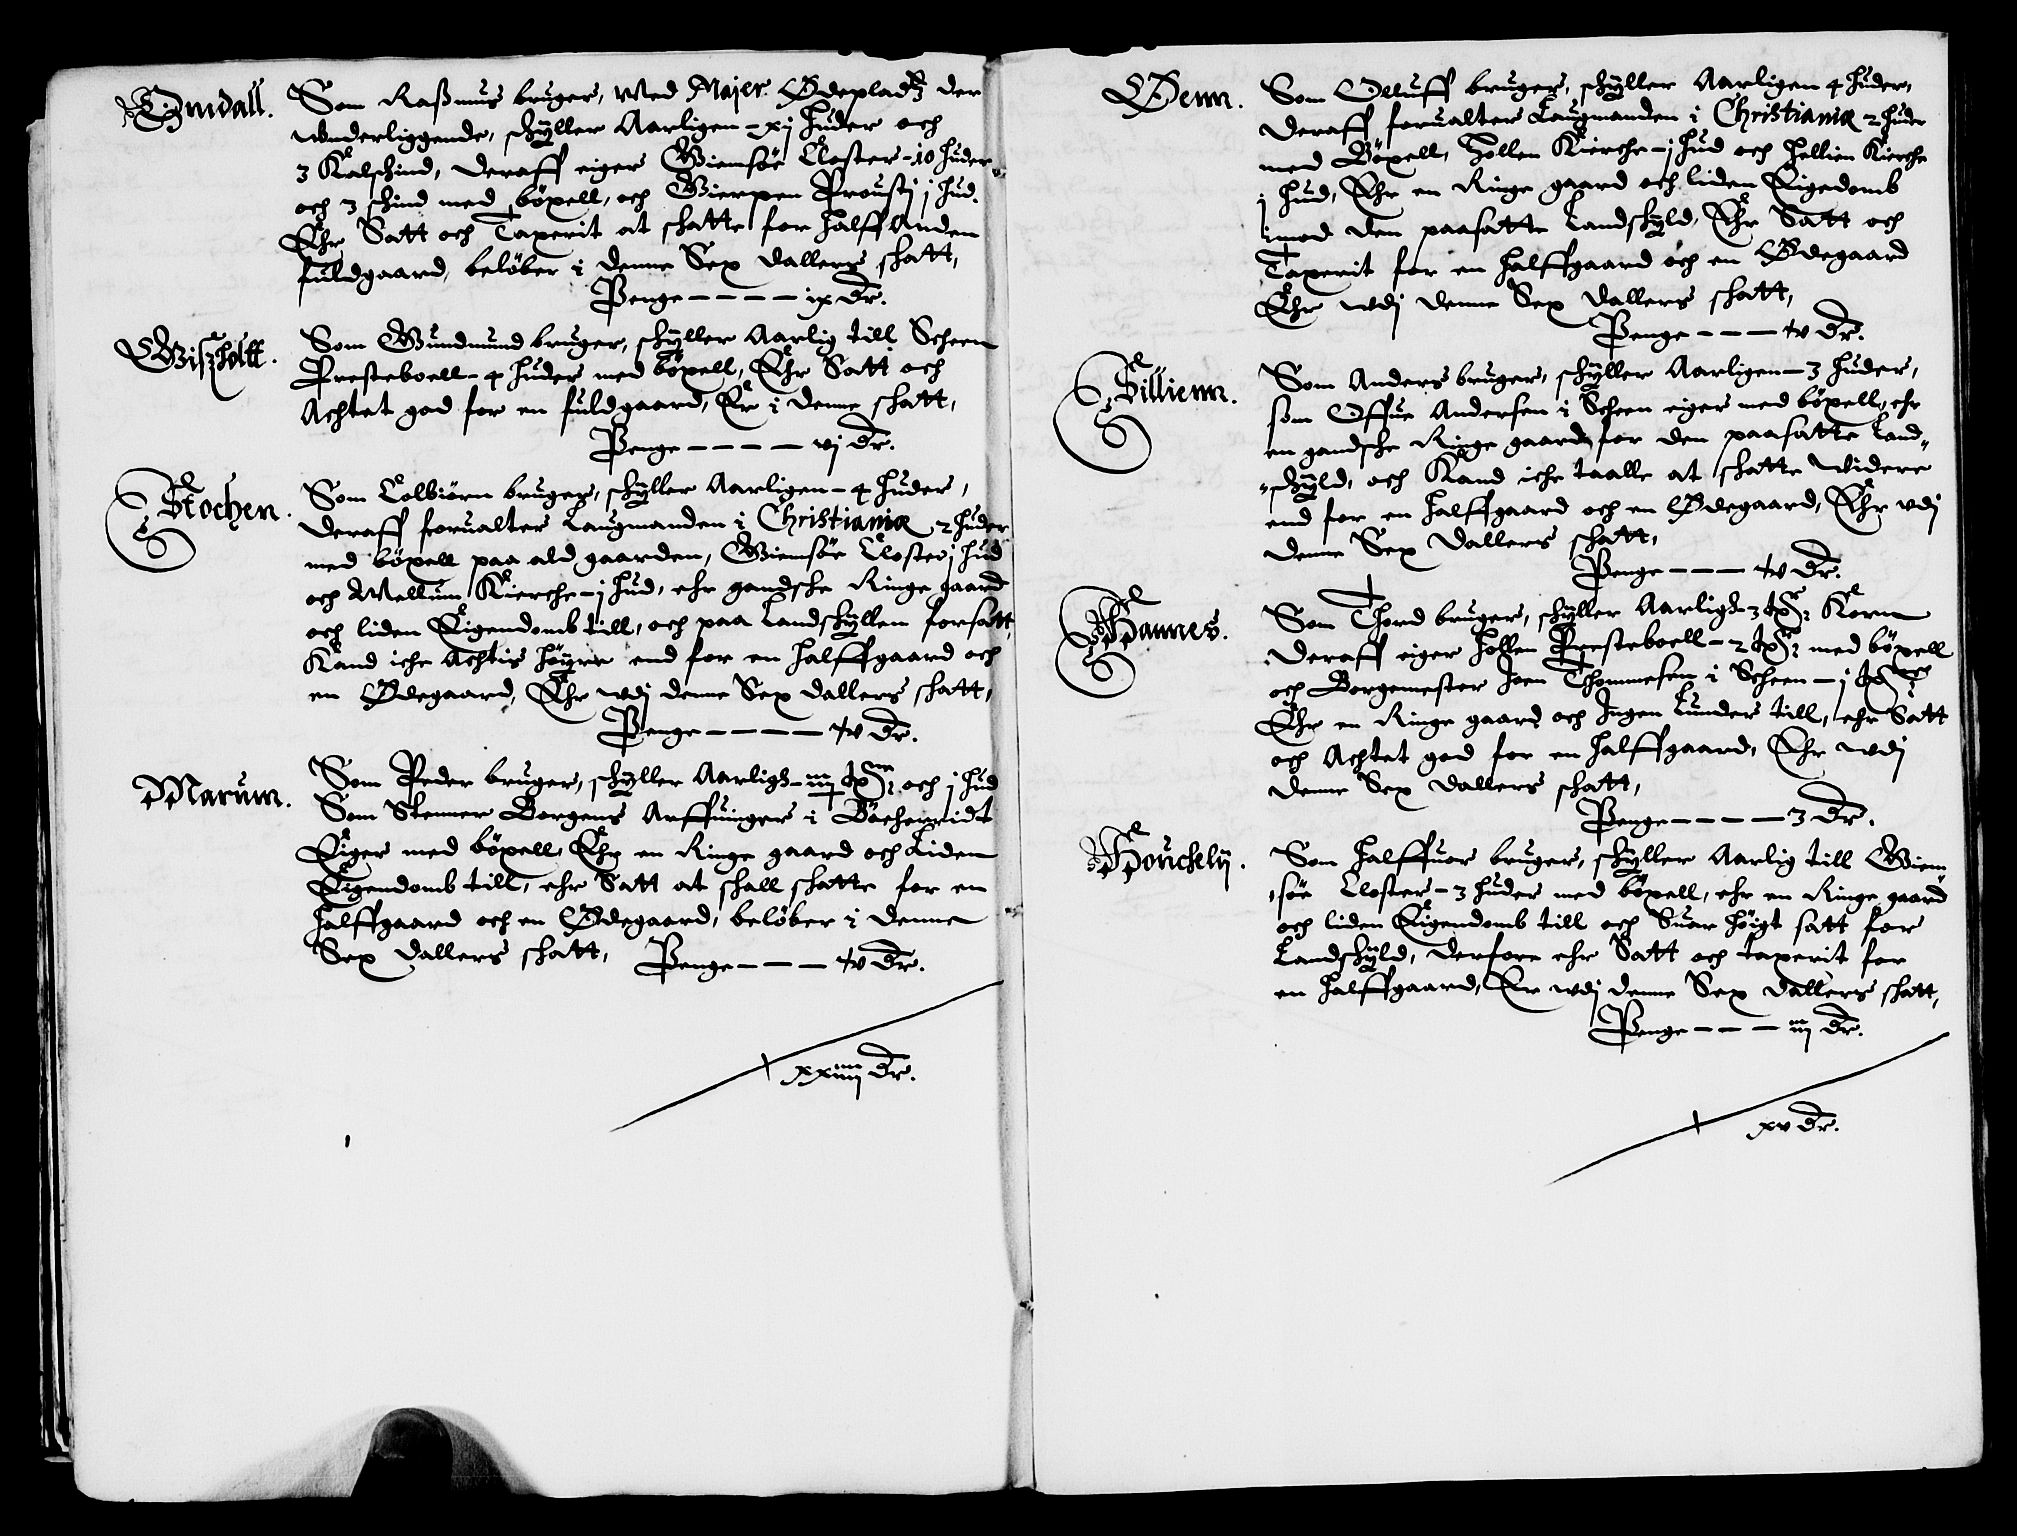 Omdall.
Som Raßmus bruger, med Majer Ødepladtz der
wnderliggende, schÿller Aarligen - xj huder och
3 Kalschind, deraff eiger Giemsøe Closter - 10 huder
och 3 schind med böxell, och Gierpen Proustj j hud.
Ehr Satt och Taxerit at schatte for halff Anden
fuldgaard, beløber i denne Sex dallers schatt,
Penge - - - - ix Dr.
Giszholtt.
Som Gundmund bruger, schÿller Aarlig till Scheen
Presteboell - 4 huder med böxell, Ehr Satt och
Achtet god for en fuldgaard, Er i denne schatt,
Penge - - - - vj Dr.
Stochen.
Som Colbiörn bruger, schÿller Aarligen - 4 huder,
deraff forualter Laugmanden i Christiania 2 huder
med böxell paa ald gaarden, Giemsöe Closter j hud
och Mellum Kierche - j hud, ehr gandsche Ringe gaard
och liden Eigendomb till, och paa Landschÿllen forsatt,
Kand iche Achtis höÿre end for en halffgaard och
en Ødegaard, Ehr wdj denne Sex dallers schatt,
Penge - - - - iv Dr.
Marum.
Som Peder bruger, schÿller Aarligh - iij och j hud
Som Stenner Borgens Arffuinger i
Eiger med böxell, Ehr en Ringe gaard och Liden
Eigendomb till, ehr Satt at schall schatte for en
halffgaard och en Ødegaard, beløber i denne
Sex dallers schatt, Penge - - - iv Dr.
xxiiij Dr.
Øenn.
Som Olluff bruger, schÿller Aarligen 4 huder,
deraff forualter Laugmanden i Christiania 2 huder
med Böxell, Hollen Kierche - j hud och Hellien Kierche
j hud, Ehr en Ringe gaard och liden Eigedomb
imod den paasatte Landschÿld, Ehr Satt och
Taxerit for en halffgaard och en Ødegaard
Ehr wdj denne Sex dallers schatt,
Penge - - - iv Dr.
Sillienn.
Som Anders bruger, schÿller Aarligen - 3 huder,
som Offue Andersen i Scheen eiger med böxell, ehr
en gandsche Ringe gaard for den paasatte Land-
schÿld, och Kand iche taalle at schatte widere
end for en halffgaard och en Ødegaard, Ehr vdj
denne Sex dallers schatt,
Penge - - - iv Dr.
Hannes.
Som Thord bruger, schÿller Aarligh - 3 Korn
deraff eiger Hollen Presteboell - 2 med böxell
och Borgemester Joen Thommesen i Scheen - j
Ehr en Ringe gaard och Ingen Lunder till, ehr Satt
och Achtet god for en halffgaard, Ehr wdj
denne Sex dallers schatt,
Penge - - - - 3 Dr.
Houchelÿ.
Som Halffuor bruger, schÿller Aarlig till Giem
söe Closter - 3 huder med böxell, ehr en Ringe gaard
och liden Eigendomb till och Suar høigt satt for
Landschÿld, derfore ehr Satt och taxerit for
en halffgaard, Er wdj denne Sex dallers schatt,
Penge - - - iij Dr.
xv Dr.